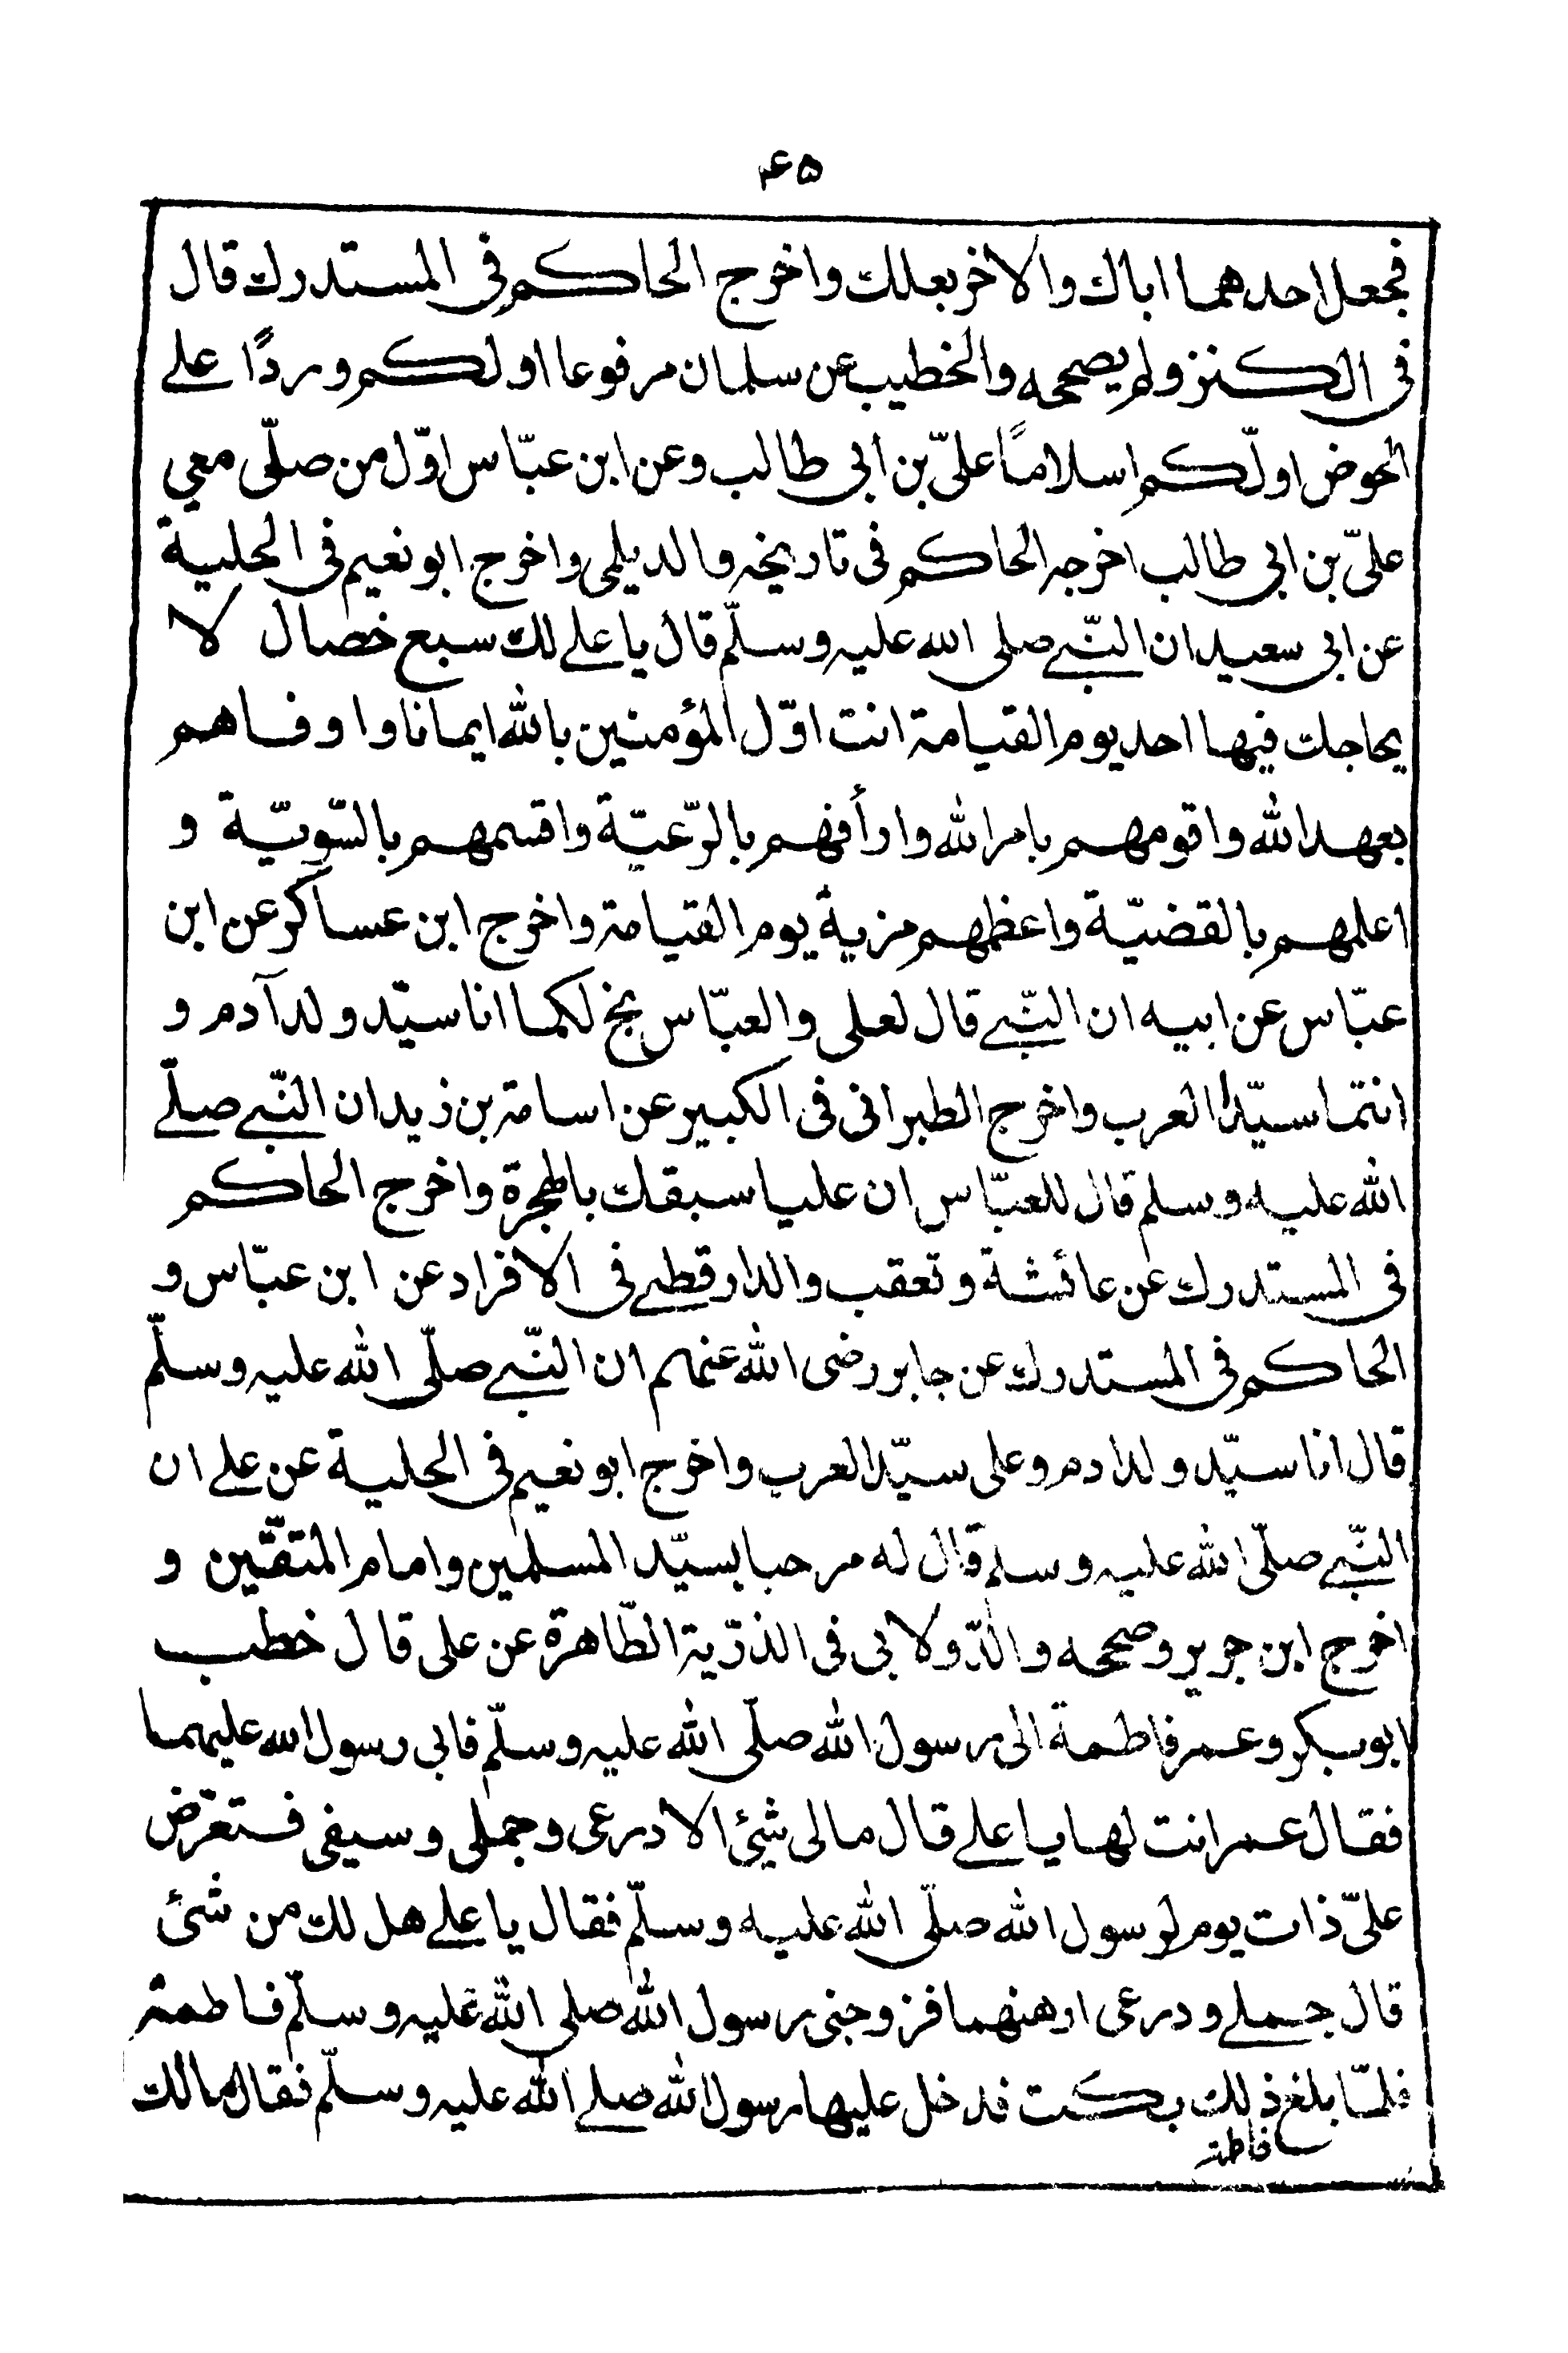 ۴۵
فجعل احدهما اباك والاخر بعلك واخرج الحاكم فى المستدرك قال
فى الكنز ولم يصححه والخطيب عن سلمان مرفوعا اولكم ورردًا على
الحوض اولّكم اسلامًا علىّ بن ابى طالب وعن ابن عبّاس اوّل من صلّى معي
علىّ بن ابى طالب اخرجه الحاكم فى تاريخه والديلمى واخرج ابو نعيم فى الحلية
عن ابى سعيد ان النّبى صلى الله عليه وسلّم قال يا على لك سبع خصال لا
يحاجك فيها احد يوم القيامة انت اوّل المؤمنين بالله ايمانا واوفاهم
بعهد الله واقومهم بامر الله وارأفهم بالرّعيّة واقسمهم بالسّويّة و
اعلمهم بالقضيّة واعظمهم مزية يوم القيامة واخرج ابن عساكر عن ابن
عبّاس عن ابيه ان النّبى قال لعلى والعبّاس بخ لكما انا سيّد ولد آدم و
انتما سيّدا العرب واخرج الطبرانى فى الكبير عن اسامة بن زيد ان النّبى صلّى
الله عليه وسلم قال للعبّاس ان عليا سبقك بالهجرة واخرج الحاكم
فى المستدرك عن عائشة وتعقب والدارقطنى فى الافراد عن ابن عبّاس و
الحاكم فى المستدرك عن جابر رضى الله عنهم ان النّبى صلّى الله عليه وسلّم
قال انا سيّد ولد ادم وعلى سيّد العرب واخرج ابو نعيم فى الحلية عن على ان
النّبى صلّى الله عليه وسلم قال له مرحبا بسيّد المسلمين وامام المتقّين و
اخرج ابن جرير وصححه والدّولابى فى الذرّية الطّاهرة عن على قال خطب
ابوبكر وعمر فاطمة الى رسول الله صلّى الله عليه وسلّم فابى رسول الله عليهما
فقال عمر انت لها يا على قال مالى شئ الا درعى وجملى وسيفى فتعرّض
علىّ ذات يوم لرسول الله صلّى الله عليه وسلّم فقال يا على هل لك من شئ
قال جملى ودرعى ارهنهما فزوجنى رسول الله صلى الله عليه وسلّم فاطمة
فلمّا بلغ ذلك بكت فدخل عليها رسول الله صلى الله عليه وسلّم فقال مالك
فاطمة